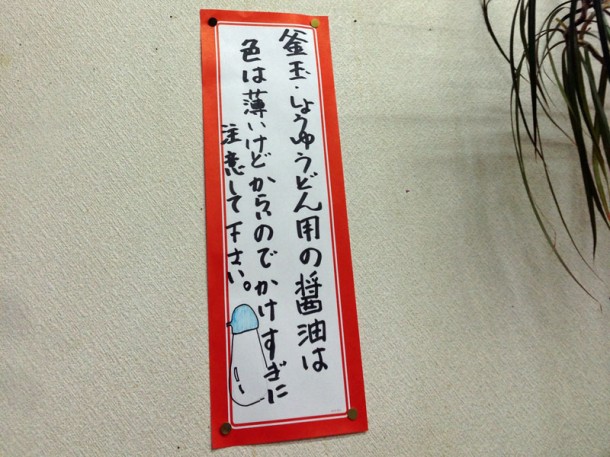 釜玉・しょうゆうどん用の醤油は
色は薄いけどからいのでかけすぎに
注意して下さい。